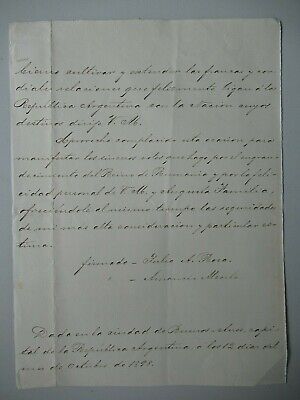 cultivar y extender las francas y cor-
diales relaciones que felizmente ligan á la
República Argentina con la Nación cuyos
destinos dirije V. M.
Aprovecho complacido esta ocasion, para
manifestar los sinceros votos que hago, por el engran-
decimiento del Reino de Rumania y por la feli-
cidad personal de V. M. y Augusta Familia,
ofreciéndole al mismo tiempo las seguridades
de mi mas alta consideracion y particular es-
tima.
firmado – Julio A. Roca.
" – Amancio Alcorta
Dada en la ciudad de Buenos Aires, capi-
tal de la República Argentina, a los 12 dias del
mes de Octubre de 1898.